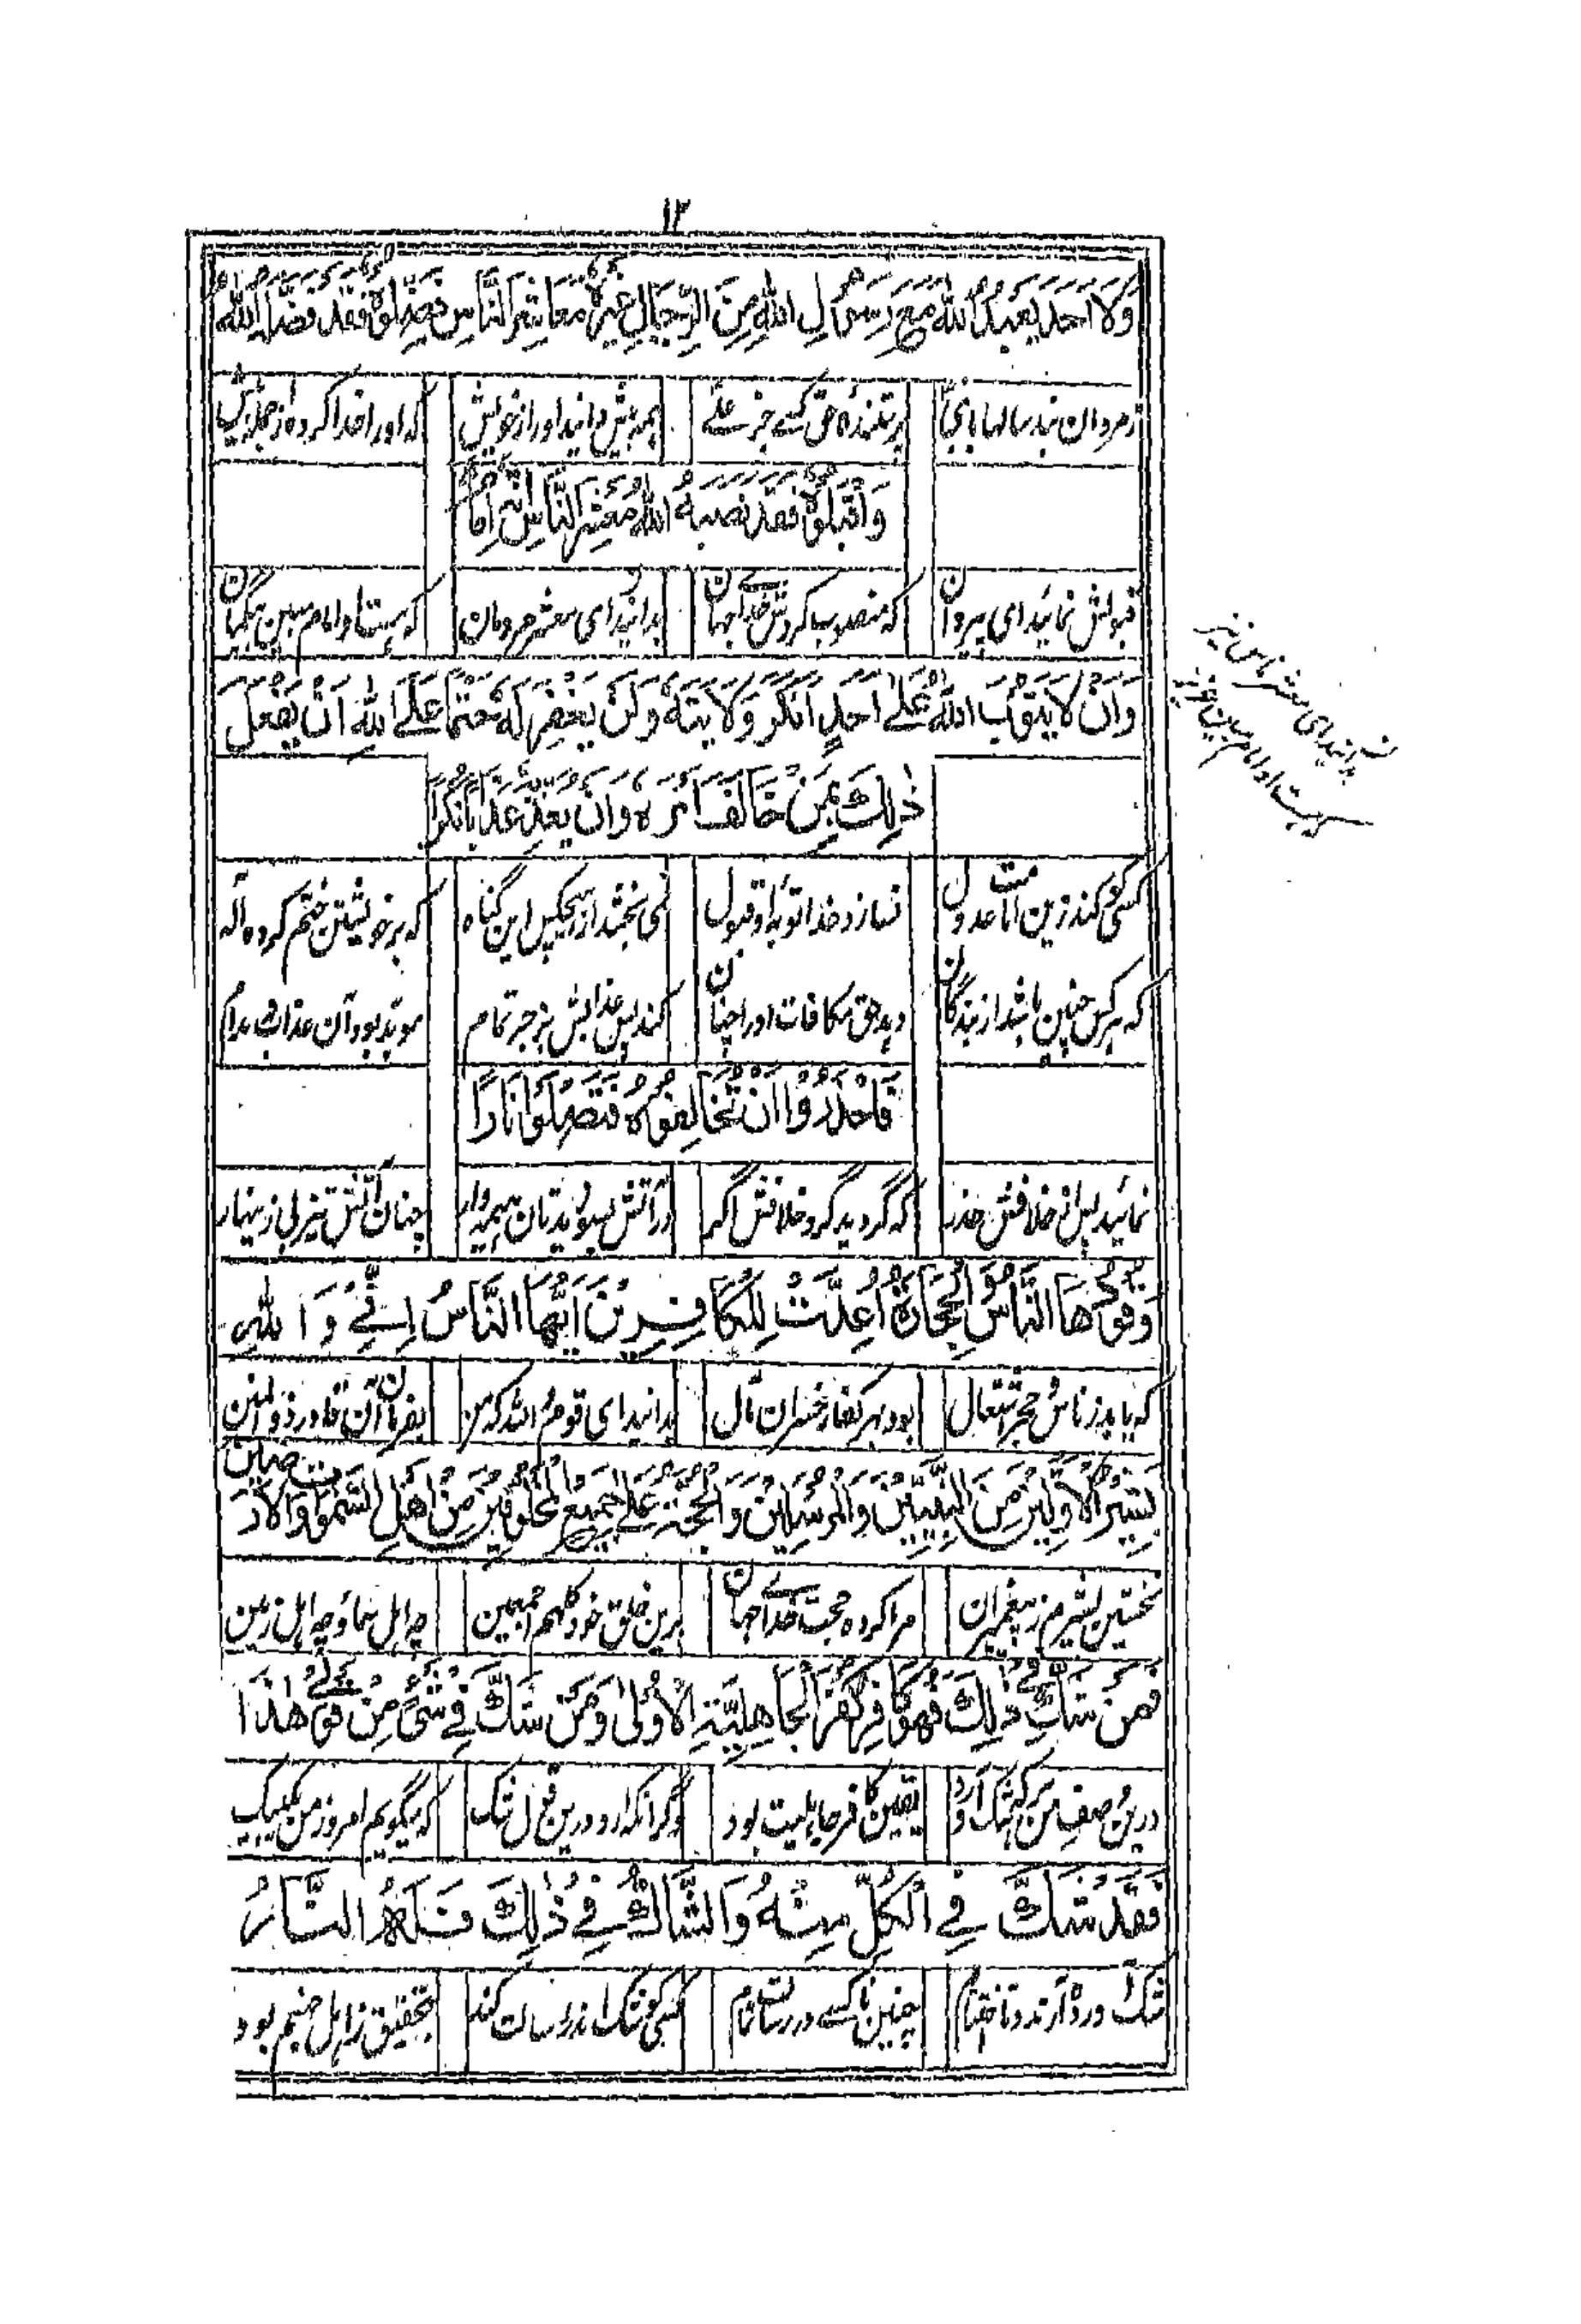 ۱۳
وَلَا اَحَدَ يَعْبُدُ اللهَ مَعَ رَسُوْلِ اللهِ مِنَ الرِّجَالِ غَيْرُهُ مَعَاشِرَ النَّاسِ فَضِّلُوْهُ فَقَدْ فَضَّلَهُ اللهُ
زمردان نبد سالها با نبی پرستندهٔ حق کسے جز علے همه بیش دانید او را ز خویش که او را خدا کرده از جمله بیش
وَاقْبَلُوْهُ فَقَدْ نَصَبَهُ اللهُ مَعْشَرَ النَّاسِ اِنَّهُ اِمَامٌ
قبولش نمائید ای پیروان که منصوب کردش خدای جهان بدانید ای معشر مردمان که هست او امام مبین بیگمان
وَاَنْ لَا يَتُوْبَ اللهُ عَلٰى اَحَدٍ اَنْكَرَ وَلَايَتَهُ وَلَنْ يَغْفِرَ لَهُ حَتْمًا عَلَى اللهِ اَنْ يَفْعَلَ
ذٰلِكَ بِمَنْ خَالَفَ اَمْرَهُ وَاَنْ يُعَذِّبَهُ عَذَابًا نُكْرًا
کسی کو کند زین امامت عدول نسازد خدا توبهٔ او قبول نمی بخشد از هیچکس این گناه که بر خویشتن ختم کرده اله
که هر کس چنین باشد از بندگان دهد حق مکافات او را چنان کند پس عذابش بزجر تمام موبد بود آن عذاب مدام
فَاحْذَرُوْا اَنْ تُخَالِفُوْهُ فَتَصْلَوْا نَارًا
نمائید پس از خلافش حذر که گردید گرد خلافش اگر در آتش بسوزیدتان همیه‌وار چنان آتش تیزلی زینهار
وَقُوْدُهَا النَّاسُ وَالْحِجَارَةُ اُعِدَّتْ لِلْكَافِرِيْنَ اَيُّهَا النَّاسُ اِنِّيْ وَاللهِ
که یابد ز ناس و حجر اشتعال بود بهر کفار خسران مآل بدانید ای قوم والله که من بفرمان آن قادر ذو المنن
بَشِيْرُ الْاَوَّلِيْنَ مِنَ النَّبِيِّيْنَ وَالْمُرْسَلِيْنَ وَالْحُجَّةُ عَلٰى جَمِيْعِ الْمَخْلُوْقِيْنَ مِنْ اَهْلِ السَّمٰوَاتِ وَالْاَرَضِيْنَ
نخستین بشیرم ز پیغمبران مرا کرده حجت خدای جهان برین خلق خود کلهم اجمعین چه اهل سما و چه اهل زمین
فَمَنْ شَكَّ فِيْ ذٰلِكَ فَهُوَ كَافِرٌ كُفْرَ الْجَاهِلِيَّةِ الْاُوْلٰى وَمَنْ شَكَّ فِيْ شَيْءٍ مِنْ قَوْلِيْ هٰذَا
درین وصف من هر که شک آورد یقین کافر جاهلیت بود وگر آنکه آرد درین قول شک که میگویم امروز من یک بیک
فَقَدْ شَكَّ فِي الْكُلِّ مِنْهُ وَالشَّاكُّ فِيْ ذٰلِكَ فَلَهُ النَّارُ
شک آورده تا اختتام چنین ناکسے در رسالت تمام کسی کو شک اندر رسالت کند بتحقیق ز اهل جهنم بود
بدانید ای معشر ناس نیز
هست او امام مبین